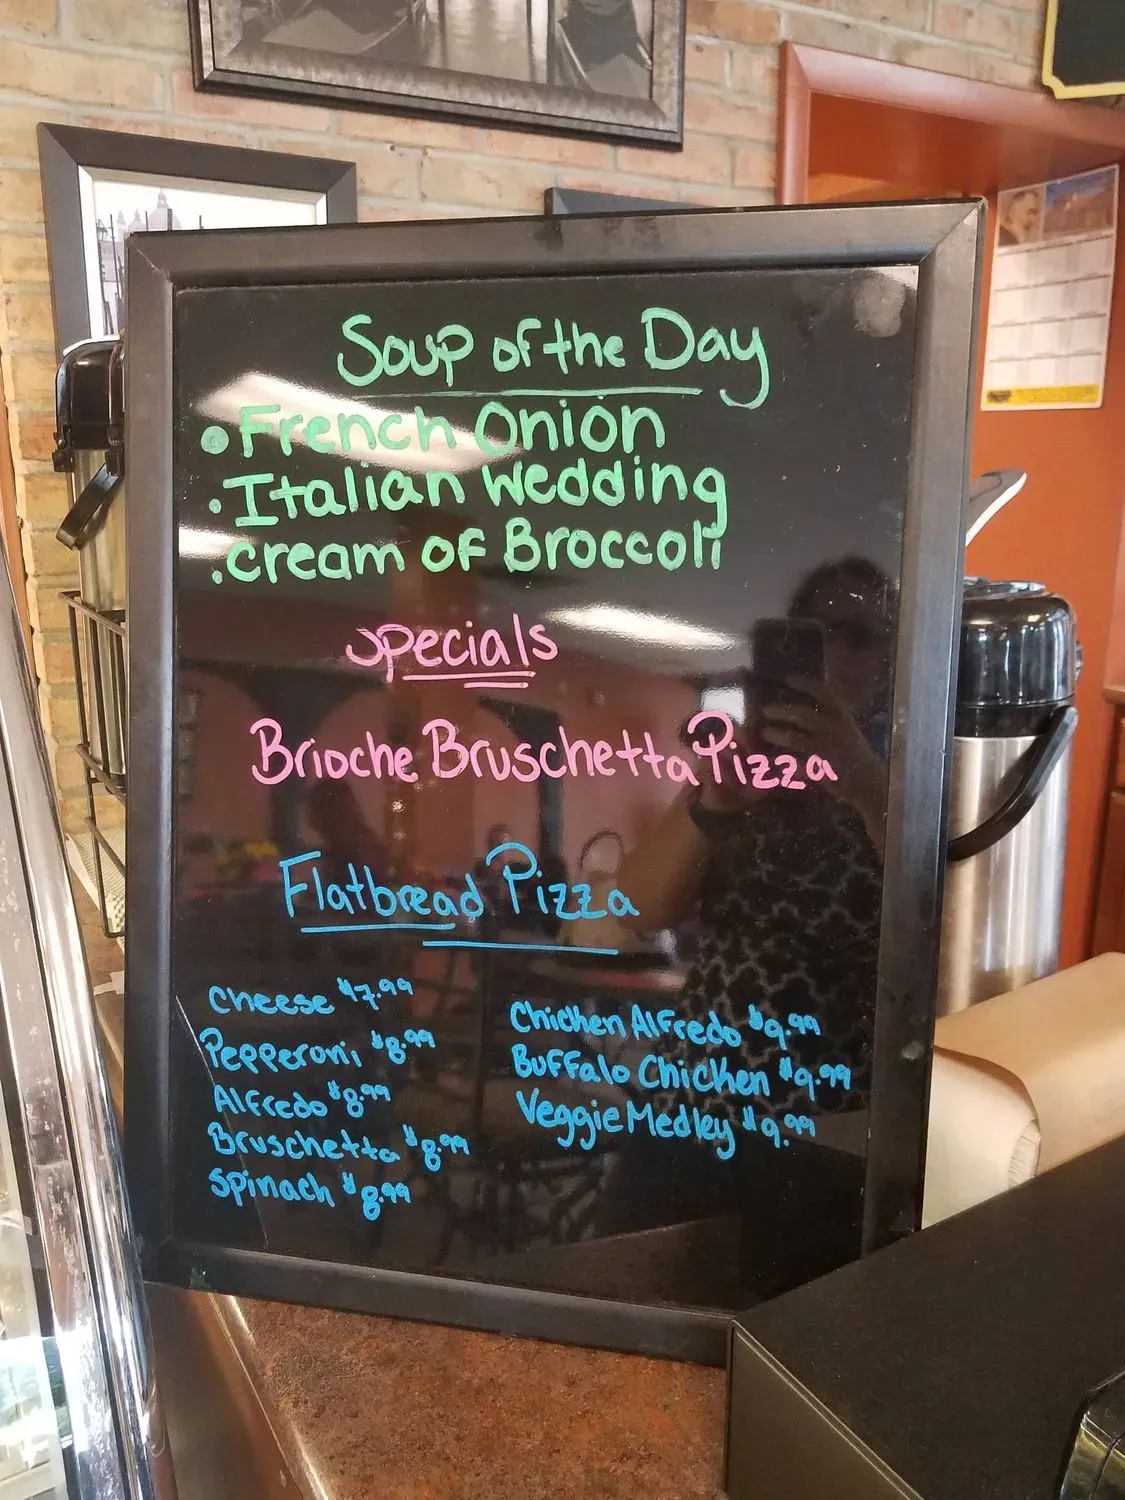 Soup of the Day
• French Onion
• Italian Wedding
• cream of Broccoli
specials
Brioche Bruschetta Pizza
Flatbread Pizza
Cheese $7.99
Pepperoni $8.99
Alfredo $8.99
Bruschetta $8.99
Spinach $8.99
Chicken Alfredo $9.99
Buffalo Chicken $9.99
Veggie Medley $9.99